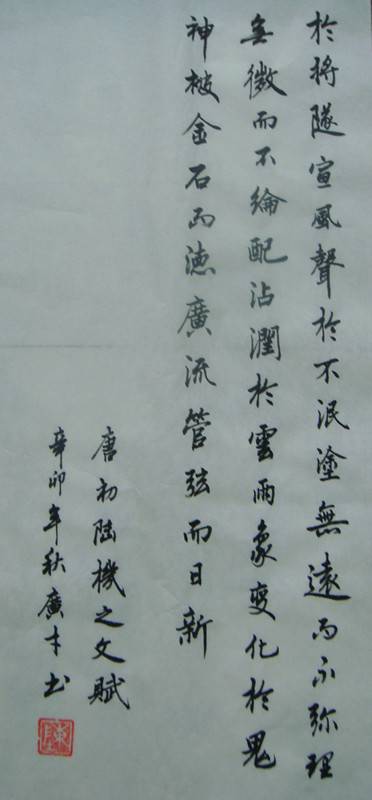 於將隧宣風聲於不泯塗無遠而不弥理
無微而不綸配沾潤於雲雨象變化於鬼
神被金石而德廣流管弦而日新
唐初陸機之文賦
辛卯年秋廣才书